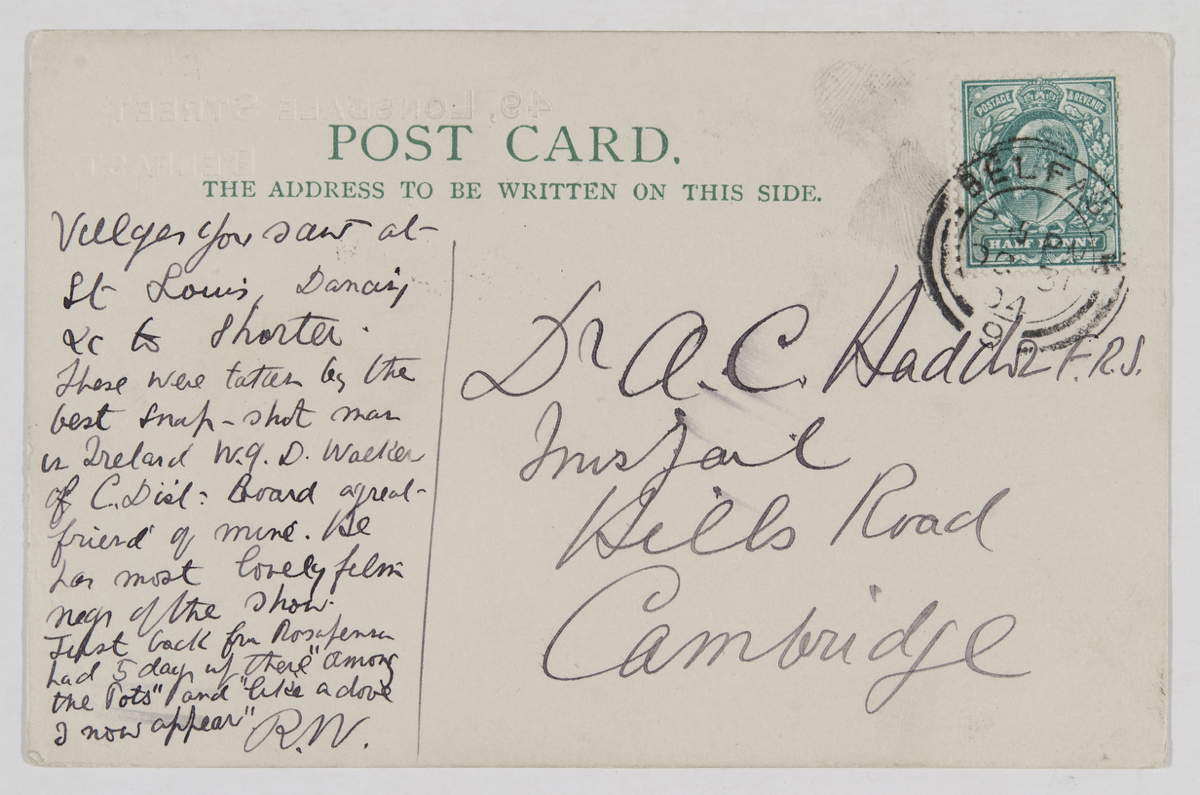 49, LONSDALE STREET
BELFAST.
POST CARD.
THE ADDRESS TO BE WRITTEN ON THIS SIDE.
POSTAGE & REVENUE
HALF PENNY
BELFAST
PM
OC 31
04
you saw at
St Louis, Dancing
&c to Shorter.
These were taken by the
best snap-shot man
in Ireland W.J. D. Walker
of C. Dist: Board a great
friend of mine. He
has most lovely film
negs of the show.
Just back fm Rosapenna
had 5 days up there "among
the Pots" and "like a dove
I now appear"
R.W.
Dr A. C. Haddon F.R.S.
Inisfail
Hills Road
Cambridge